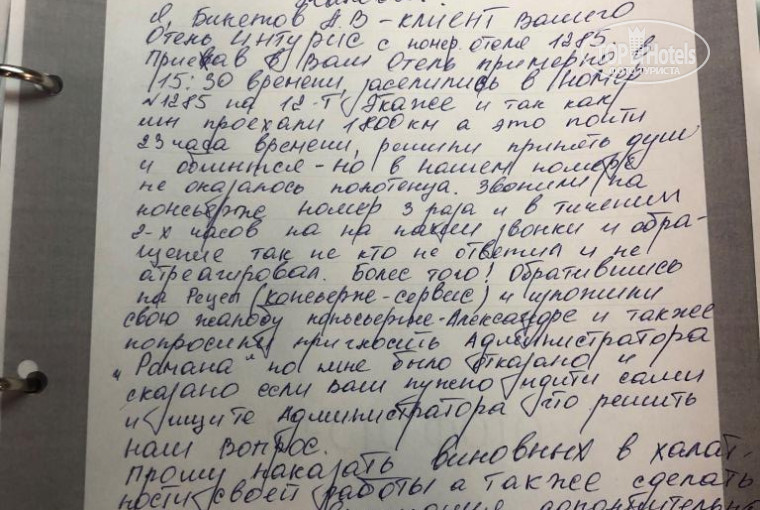 Я, Бикетов А.В – клиент Вашего
Отель Интурис с номер. отеля 1285. в
Приехав в Ваш Отель примерно в
15:30 времени, заселились в номер
№1285 на 12-т Этаже и так как
мы проехали 1800 км а это почти
23 часа времени, решили принять душ
и обмытся – но в нашем номере
не оказалось полотенца. Звонили на
консьерже номер 3 раза и в течении
2-х часов на на нашеи звонки и обра-
щение так не кто не ответил и не
атреагировал. Более того! Обратившись
на Рецеп (консьерже-сервис) и изложили
свою жалобу консьерже-Александре и также
попросили пригласить Администратора
"Романа" но мне было отказано и
сказано если Вам нужно идити сами
и ищите Администратора что решить
наш вопрос.
Прошу наказать виновных в халат.
ности своей работы а также сделать
дополнительно
TOP Hotels